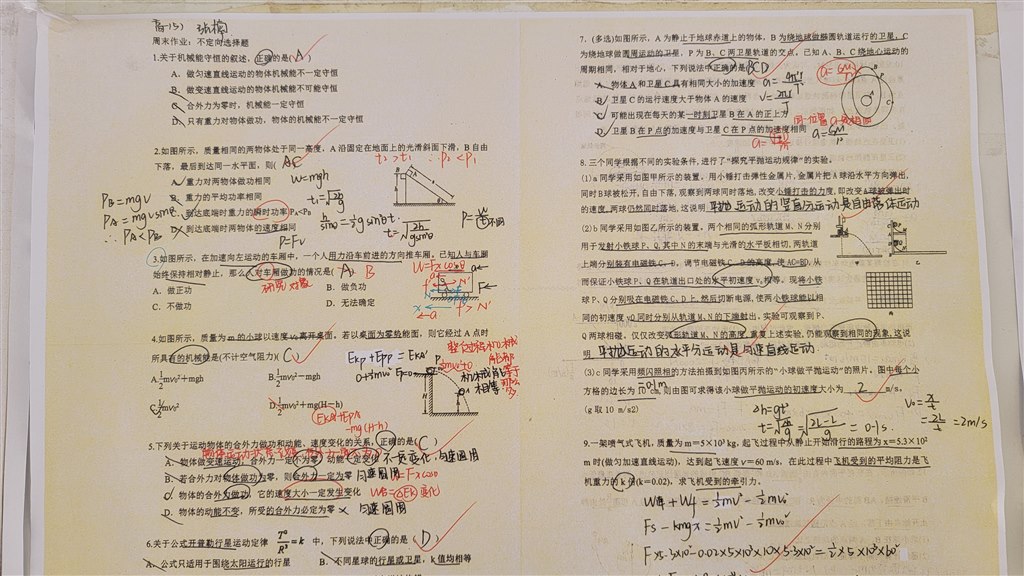 高一(5)
周末作业：不定向选择题
1.关于机械能守恒的叙述，正确的是( A
A．做匀速直线运动的物体机械能不一定守恒
B．做变速直线运动的物体机械能不可能守恒
C．合外力为零时，机械能一定守恒
D．只有重力对物体做功，物体的机械能不一定守恒
2.如图所示，质量相同的两物体处于同一高度，A 沿固定在地面上的光滑斜面下滑，B 自由
下落，最后到达同一水平面，则( AC
t₂>t₁ ∴P₂<P₁
A．重力对两物体做功相同
W=mgh
B．重力的平均功率相同
C．到达底端时重力的瞬时功率 PA<PB
D．到达底端时两物体的速度相同
PB=mgv
PA=mgvsinθ
∴PA<PB
P=Fv
3.如图所示，在加速向左运动的车厢中，一个人用力沿车前进的方向推车厢，已知人与车厢
始终保持相对静止，那么人对车厢做功的情况是( A ) B
研究对象
W=Fxcosθ
A．做正功
B．做负功
C．不做功
D．无法确定
4.如图所示，质量为 m 的小球以速度 v₀离开桌面，若以桌面为零势能面，则它经过 A 点时
所具有的机械能是(不计空气阻力)( C
A.½mv₀²+mgh
B.½mv₀²−mgh
C.½mv₀²
D.½mv₀²+mg(H−h)
EkP+EpP=EkA
5.下列关于运动物体的合外力做功和动能、速度变化的关系，正确的是( C )
A．物体做变速运动，合外力一定不为零，动能一定变化 不一定变化，匀速圆周
B．若合外力对物体做功为零，则合外力一定为零 匀速圆周
C．物体的合外力做功，它的速度大小一定发生变化 W合=△Ek变化
D．物体的动能不变，所受的合外力必定为零 × 匀速圆周
6.关于公式开普勒行星运动定律 T²/R³=k 中，下列说法中正确的是( D )
A．公式只适用于围绕太阳运行的行星
B．不同星球的行星或卫星，k 值均相等
7．(多选)如图所示，A 为静止于地球赤道上的物体，B 为绕地球做椭圆轨道运行的卫星，C
为绕地球做圆周运动的卫星，P 为 B、C 两卫星轨道的交点，已知 A、B、C 绕地心运动的
周期相同，相对于地心，下列说法中正确的是( BCD
A．物体 A 和卫星 C 具有相同大小的加速度
B．卫星 C 的运行速度大于物体 A 的速度
C．可能出现在每天的某一时刻卫星 B 在 A 的正上方
D．卫星 B 在 P 点的加速度与卫星 C 在 P 点的加速度相同
8．三个同学根据不同的实验条件，进行了“探究平抛运动规律”的实验。
(1) a 同学采用如图甲所示的装置，用小锤打击弹性金属片，金属片把 A 球沿水平方向弹出，
同时 B 球被松开，自由下落，观察到两球同时落地，改变小锤打击的力度，即改变 A 球被弹出时
的速度，两球仍然同时落地，这说明 平抛运动的竖直分运动是自由落体运动
(2) b 同学采用如图乙所示的装置，两个相同的弧形轨道 M、N 分别
用于发射小铁球 P、Q，其中 N 的末端与光滑的水平板相切，两轨道
上端分别装有电磁铁 C、D，调节电磁铁 C、D 的高度，使 AC=BD，从
而保证小铁球 P、Q 在轨道出口处的水平初速度 v₀相等，现将小铁
球 P、Q 分别吸在电磁铁 C、D 上，然后切断电源，使两小铁球能以相
同的初速度 v₀同时分别从轨道 M、N 的下端射出，实验可观察到 P、
Q 两球相碰，仅仅改变弧形轨道 M、N 的高度，重复上述实验，仍能观察到相同的现象，这说
明 平抛运动的水平分运动是匀速直线运动
(3) c 同学采用频闪照相的方法拍摄到如图丙所示的“小球做平抛运动”的照片，图中每个小
方格的边长为 10 cm，则由图可求得该小球做平抛运动的初速度大小为 2 m/s。
=0.1m
(g 取 10 m/s2)
9.一架喷气式飞机，质量为 m=5×10³ kg，起飞过程中从静止开始滑行的路程为 x=5.3×10²
m 时(做匀加速直线运动)，达到起飞速度 v=60 m/s，在此过程中飞机受到的平均阻力是飞
机重力的 k 倍(k=0.02)，求飞机受到的牵引力。
W牵+Wf=½mv²−½mv₀²
Fs−kmgx=½mv²−½mv₀²
F×5.3×10²−0.02×5×10³×10×5.3×10²=½×5×10³×60²